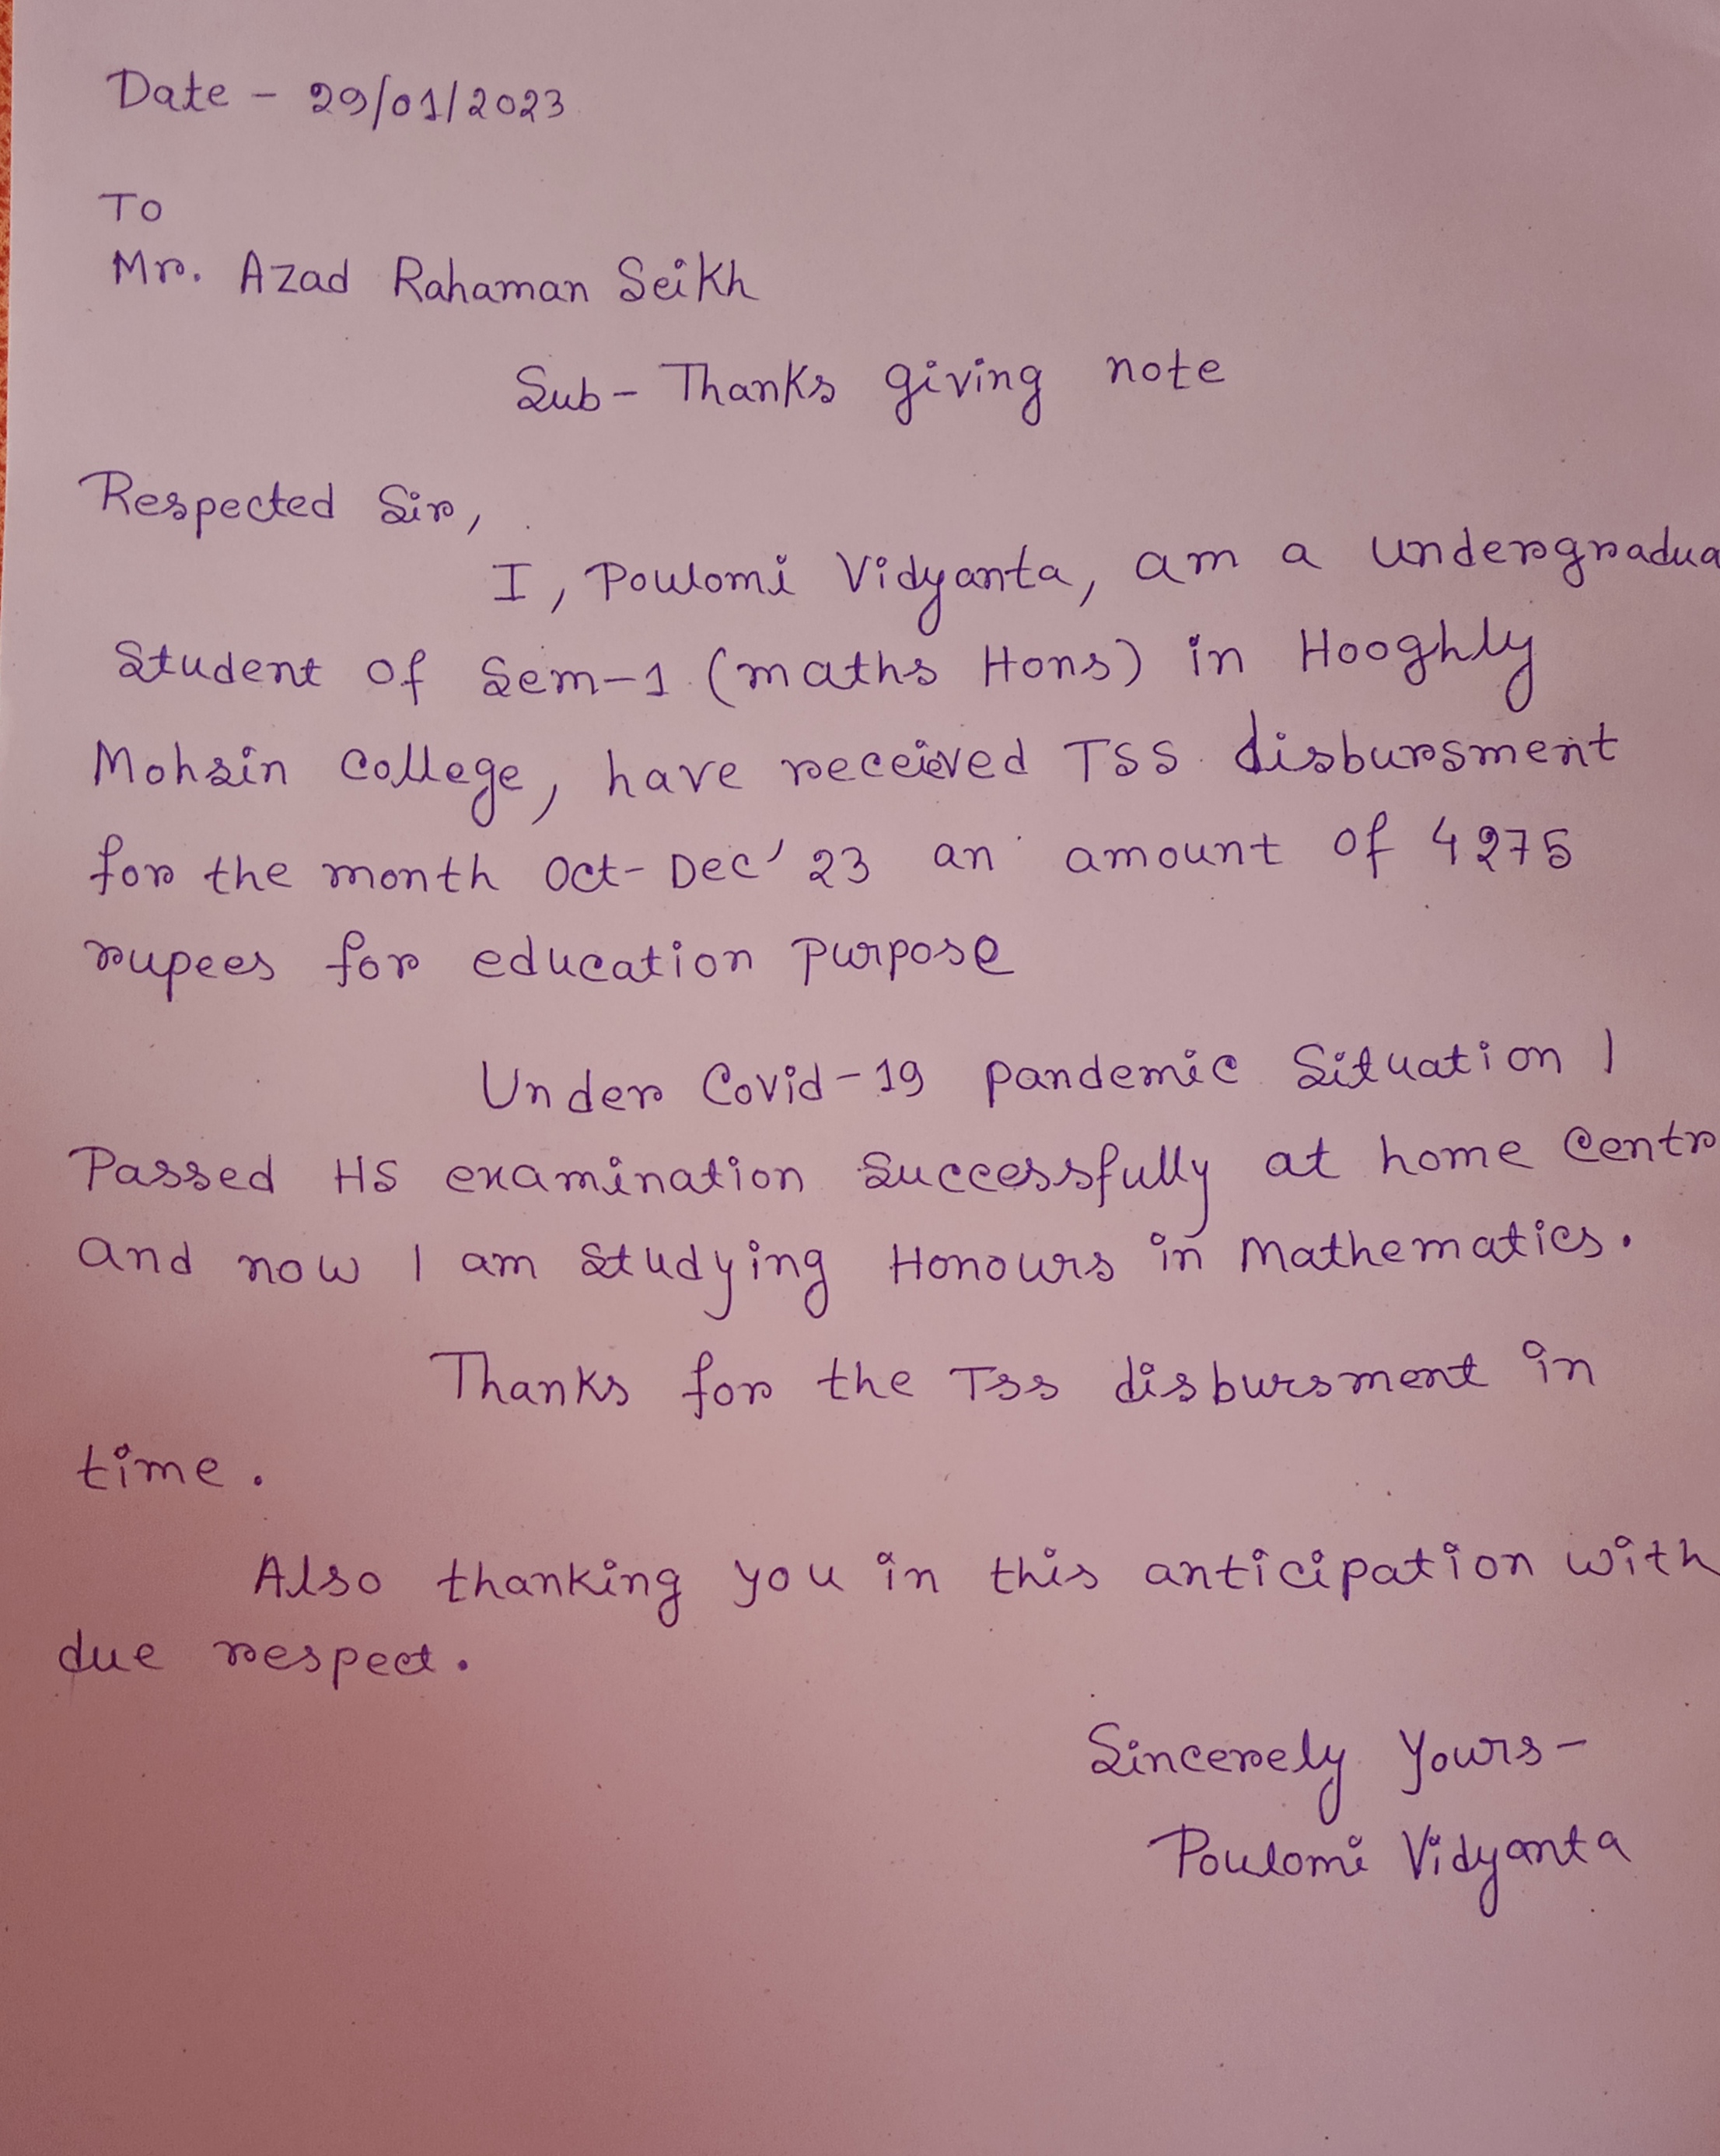 Date - 29/01/2023
To
Mr. Azad Rahaman Seikh
Sub- Thanks giving note
Respected Sir,
I, Poulomi Vidyanta, am a undergradua
student of Sem-1 (maths Hons) in Hooghly
Mohsin College, have received TSS disbursment
for the month Oct- Dec' 23 an amount of 4275
rupees for education purpose
Under Covid-19 pandemic Situation I
Passed HS examination Successfully at home Centr
and now I am studying Honours in Mathematics.
Thanks for the TSS disbursment in
time.
Also thanking you in this anticipation with
due respect.
Sincerely Yours-
Poulomi Vidyanta